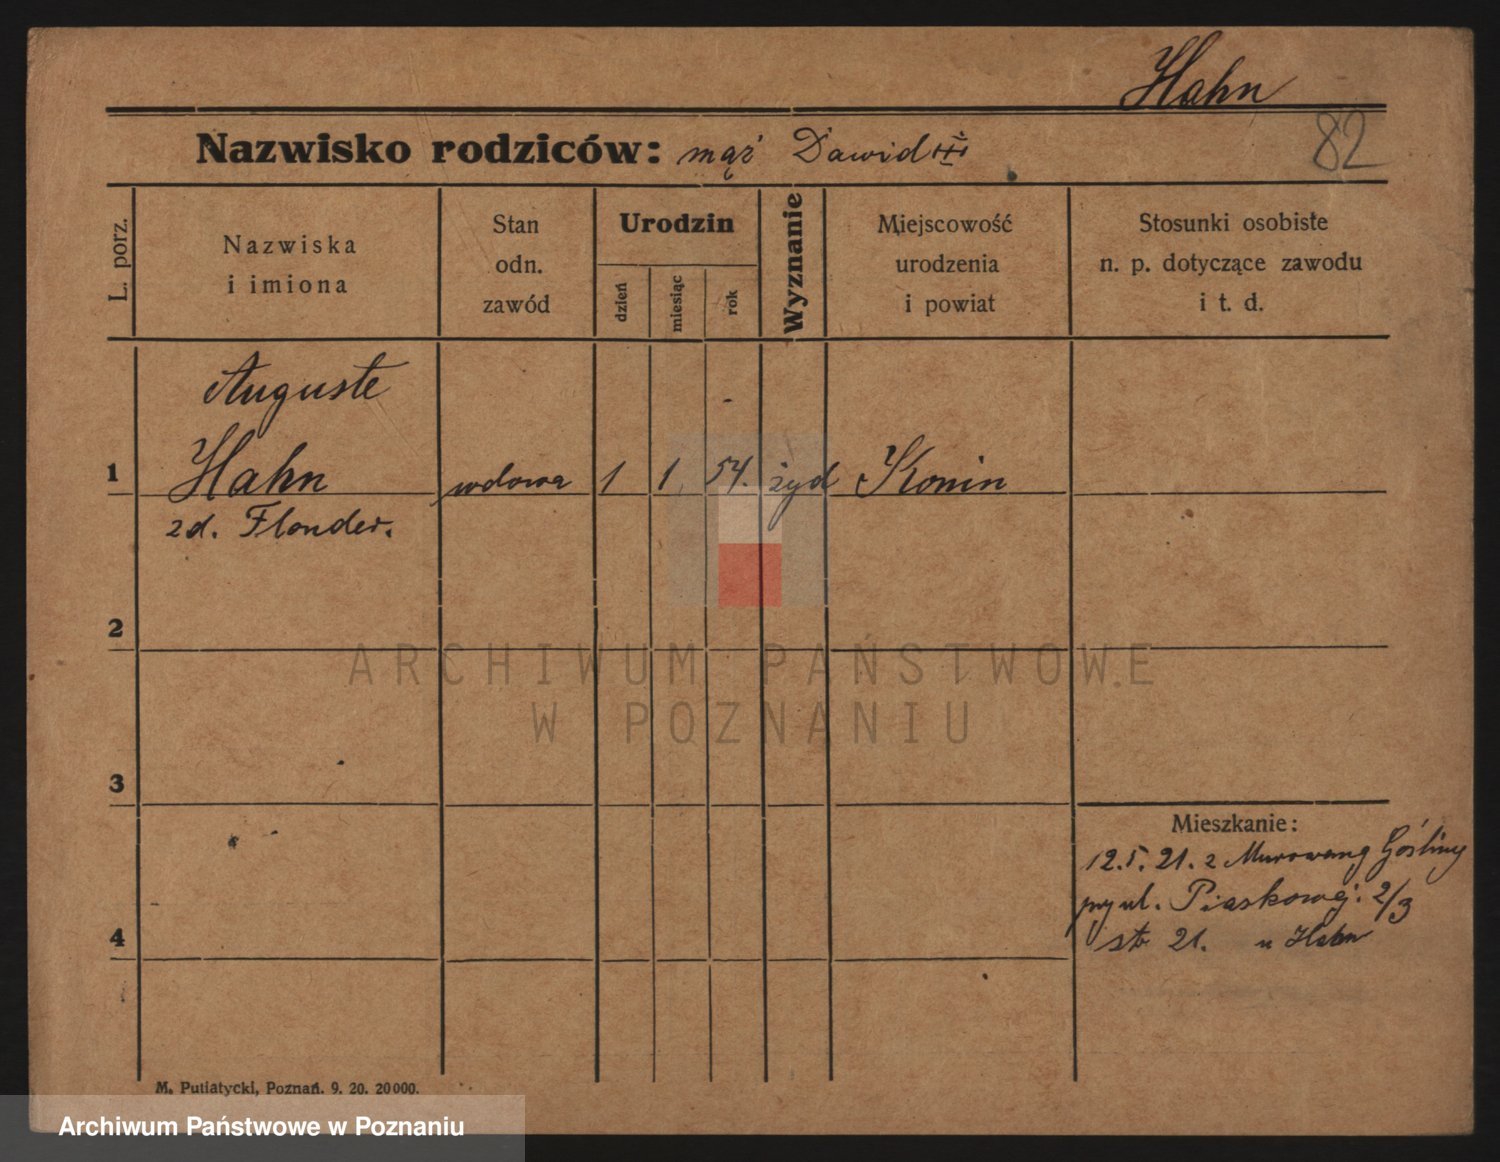 Hahn
82
Nazwisko rodziców: mąż Dawid
L. porz.
Nazwiska
i imiona
Stan
odn.
zawód
Urodzin
dzień
miesiąc
rok
Wyznanie
Miejscowość
urodzenia
i powiat
Stosunki osobiste
n. p. dotyczące zawodu
i t. d.
Auguste
1 Hahn wdowa 1 1. 54. żyd Konin
zd. Flonder.
2
ARCHIWUM PAŃSTWOWE
W POZNANIU
3
Mieszkanie:
12.5.21. z Murowanej Gośliny
przy ul. Piaskowej. 2/3
4
str 21. u Hahn
M. Putiatycki, Poznań. 9. 20. 20000.
Archiwum Państwowe w Poznaniu